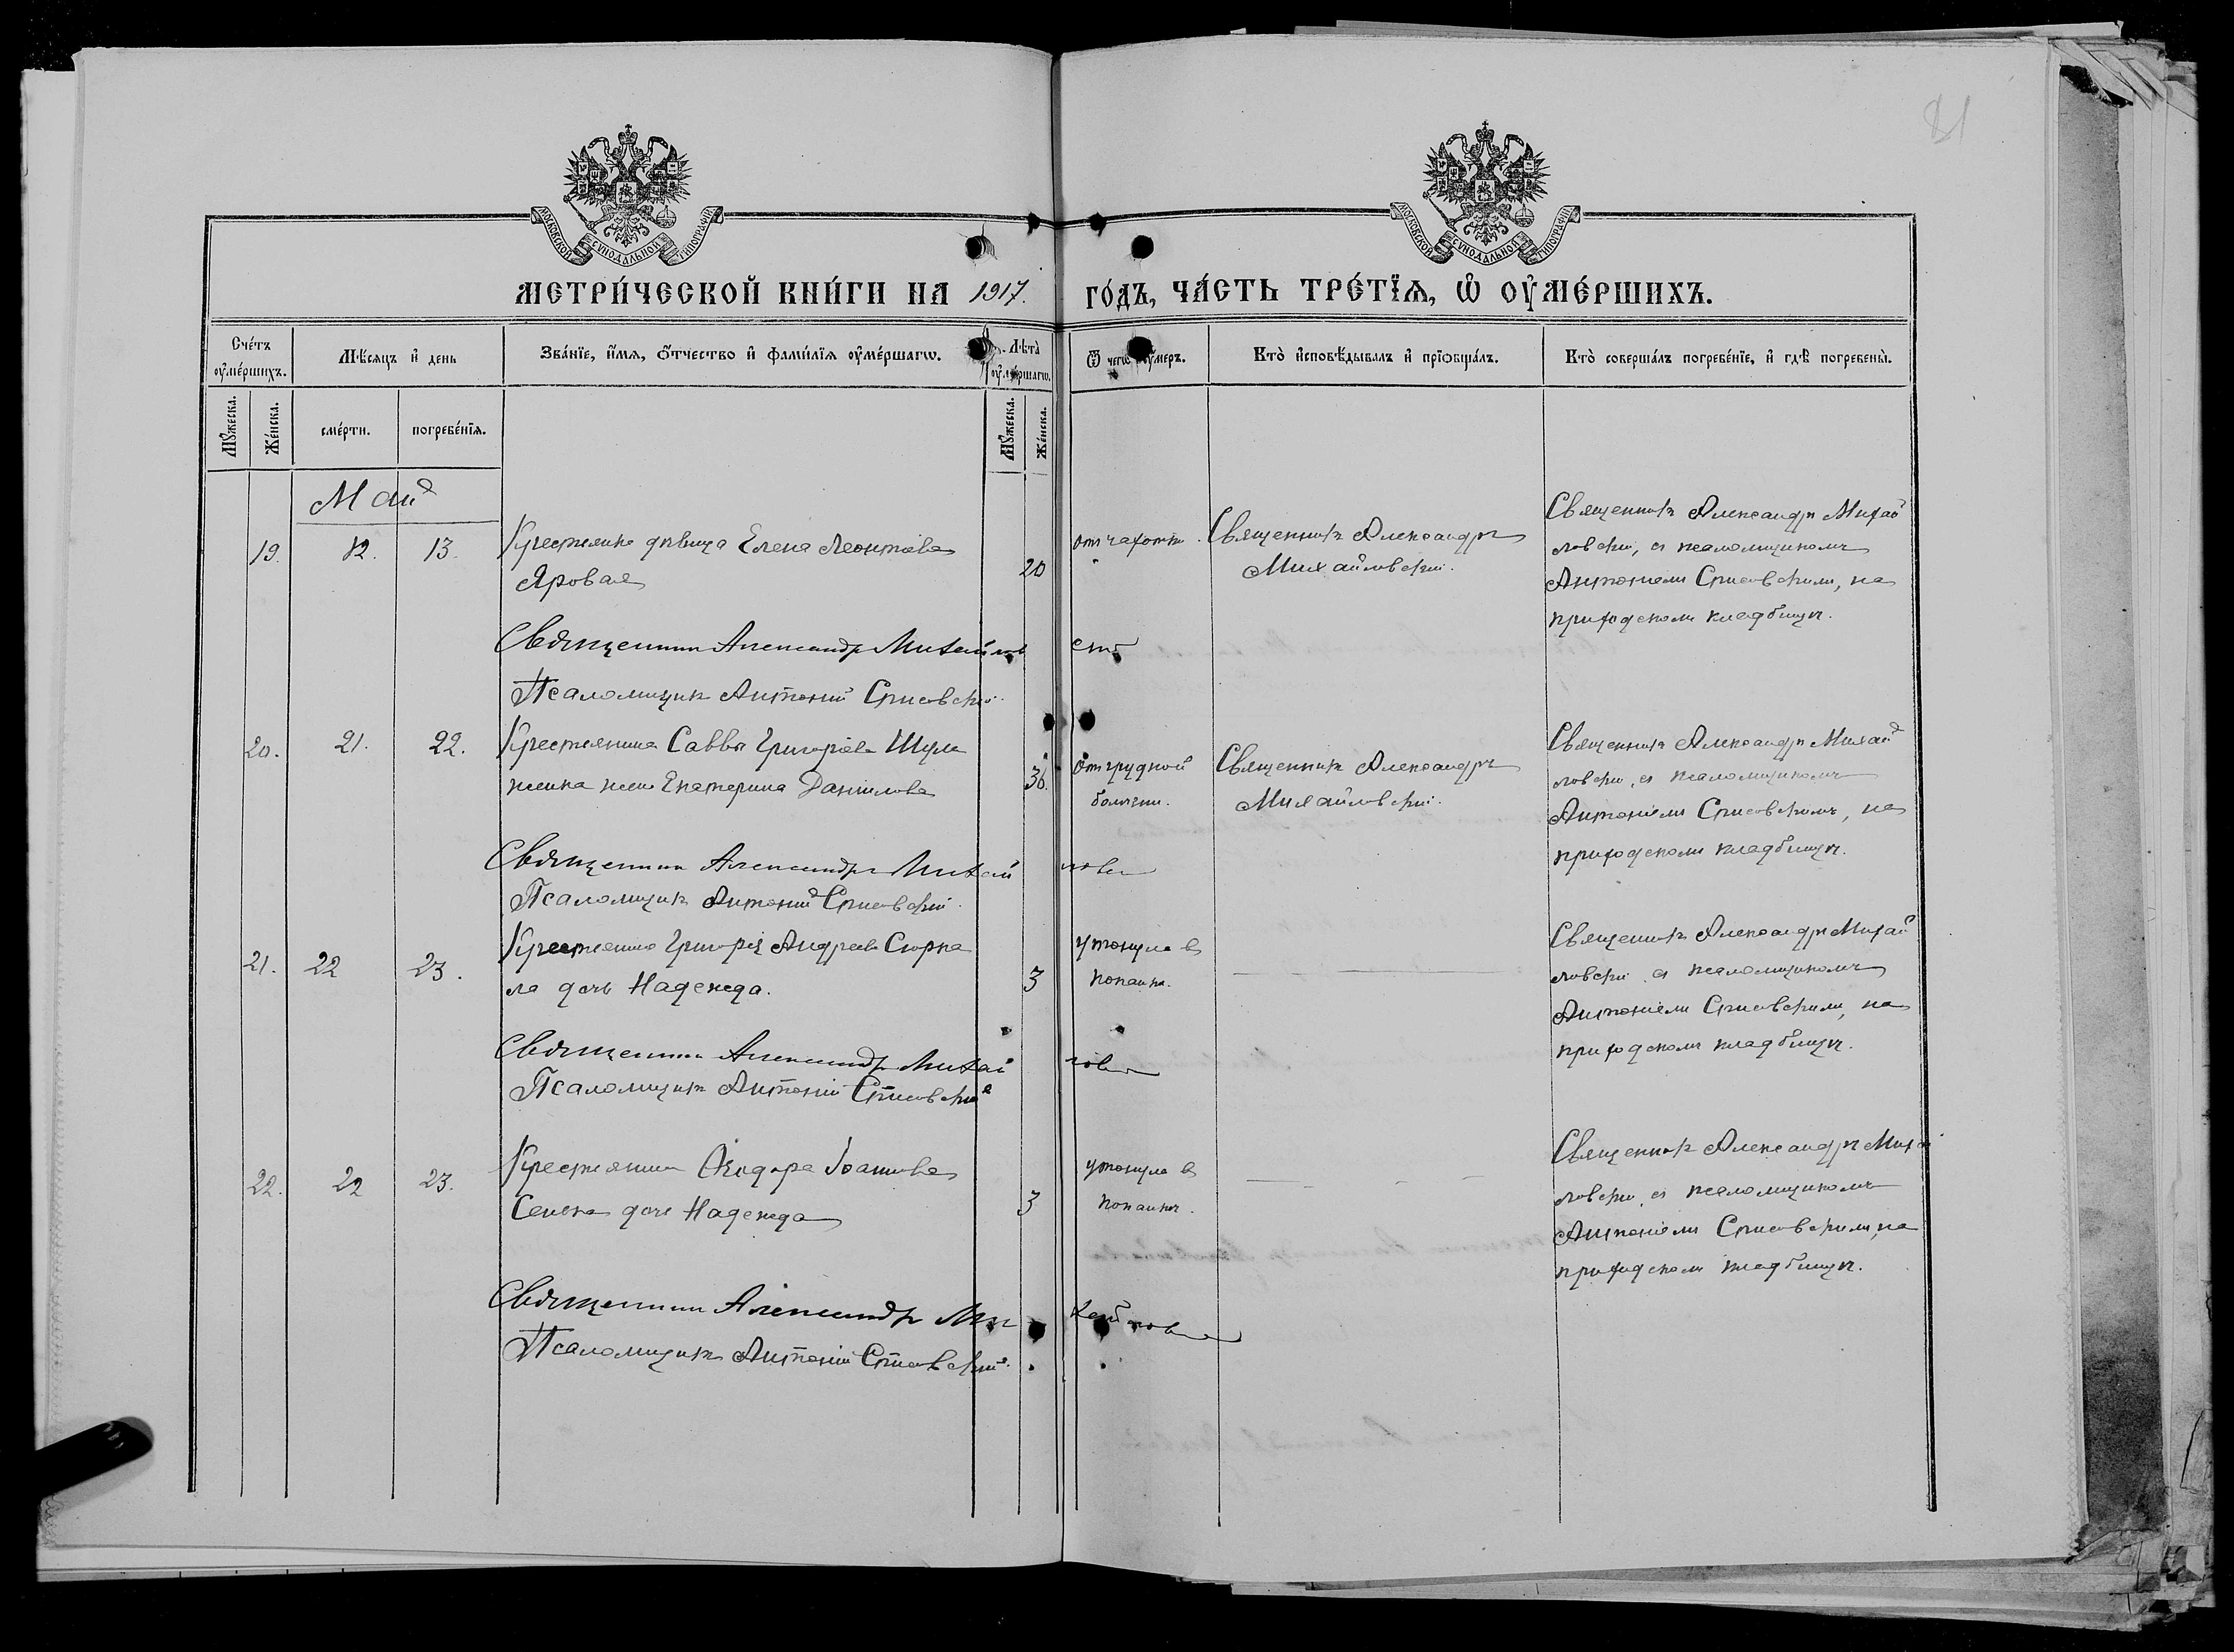 81
МОСКОВСКОЙ СУНОДАЛЬНОЙ ТИПОГРАФІИ
МОСКОВСКОЙ СУНОДАЛЬНОЙ ТИПОГРАФІИ
МЕТРИ́ЧЕСКОЙ КНИ́ГИ НА 1917. ГО́ДЪ, ЧА́СТЬ ТРЕ́ТЇѦ, Ѡ҆ ОУ҆МЕ́РШИХЪ.
Сче́тъ оу҆ме́ршихъ.
Мѣ́сяцъ и҆ день
Зва́нїе, и҆́мѧ, ѻ҆́тчество и҆ фами́лїѧ оу҆ме́ршагѡ.
Лѣта̀ оу҆ме́ршагѡ.
Ѿ чегѡ̀ оу҆́меръ.
Кто̀ и҆сповѣ́дывалъ и҆ прїѡбща́лъ.
Кто̀ соверша́лъ погребе́нїе, и҆ гдѣ̀ погребены̀.
Мꙋ́жеска.
Же́нска.
сме́рти.
погребе́нїѧ.
Мꙋ́жеска.
Же́нска.
Май
19. 12. 13. Крестьянка дѣвица Елена Леонтіева
Яровая
20
отъ чахотки.
Священникъ Александръ
Михайловскій.
Священникъ Александръ Михай
ловскій, съ псаломщикомъ
Антоніемъ Списовскимъ, на
приходскомъ кладбищѣ.
Священникъ Александръ Михайлов
скій
Псаломщикъ Антоній Списовскій.
20. 21. 22. Крестьянина Саввы Григоріева
жена Екатерина Даніилова
36.
Отъ грудной
болѣзни.
Священникъ Александръ
Михайловскій.
Священникъ Александръ Михай
ловскій, съ псаломщикомъ
Антоніемъ Списовскимъ, на
приходскомъ кладбищѣ.
Священникъ Александръ Михай
ловскій
Псаломщикъ Антоній Списовскій.
21. 22 23. Крестьянина Григорія Андреева
дочь Надежда.
3
утонула въ
копанкѣ.
Священникъ Александръ Михай
ловскій съ псаломщикомъ
Антоніемъ Списовскимъ, на
приходскомъ кладбищѣ.
Священникъ Александръ Михай
ловскій
Псаломщикъ Антоній Списовскій
22. 22 23. Крестьянина Ѳеодора Іоаннова
дочь Надежда
3
утонула въ
копанкѣ.
Священникъ Александръ Михай
ловскій, съ псаломщикомъ
Антоніемъ Списовскимъ, на
приходскомъ кладбищѣ.
Священникъ Александръ Ми
хайловскій
Псаломщикъ Антоній Списовскій.